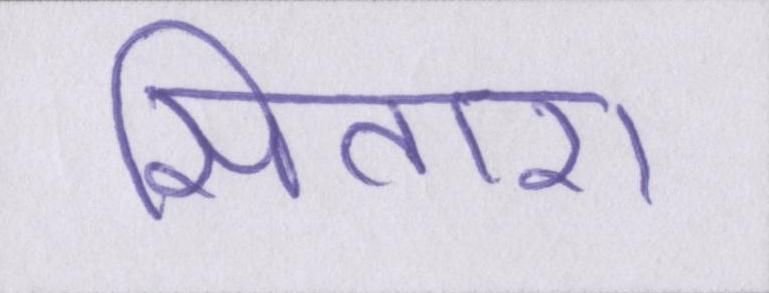 सितारा